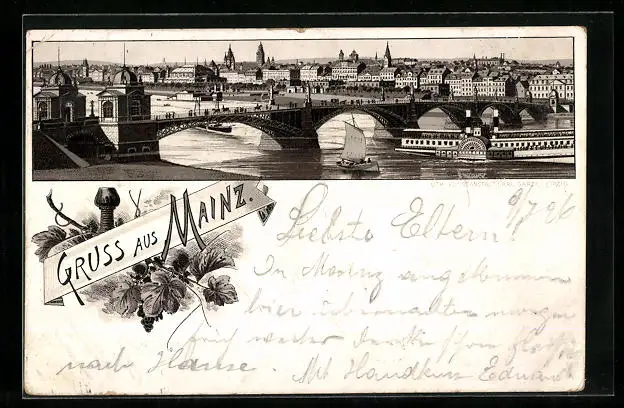 LITH. KUNSTANSTALT CARL GARTE, LEIPZIG
GRUSS AUS MAINZ.
9/7 96
Liebste Eltern!
In Mainz angekommen
hier übernachten morgen
früh weiter
nach Hause. Mit Handkuss Eduard